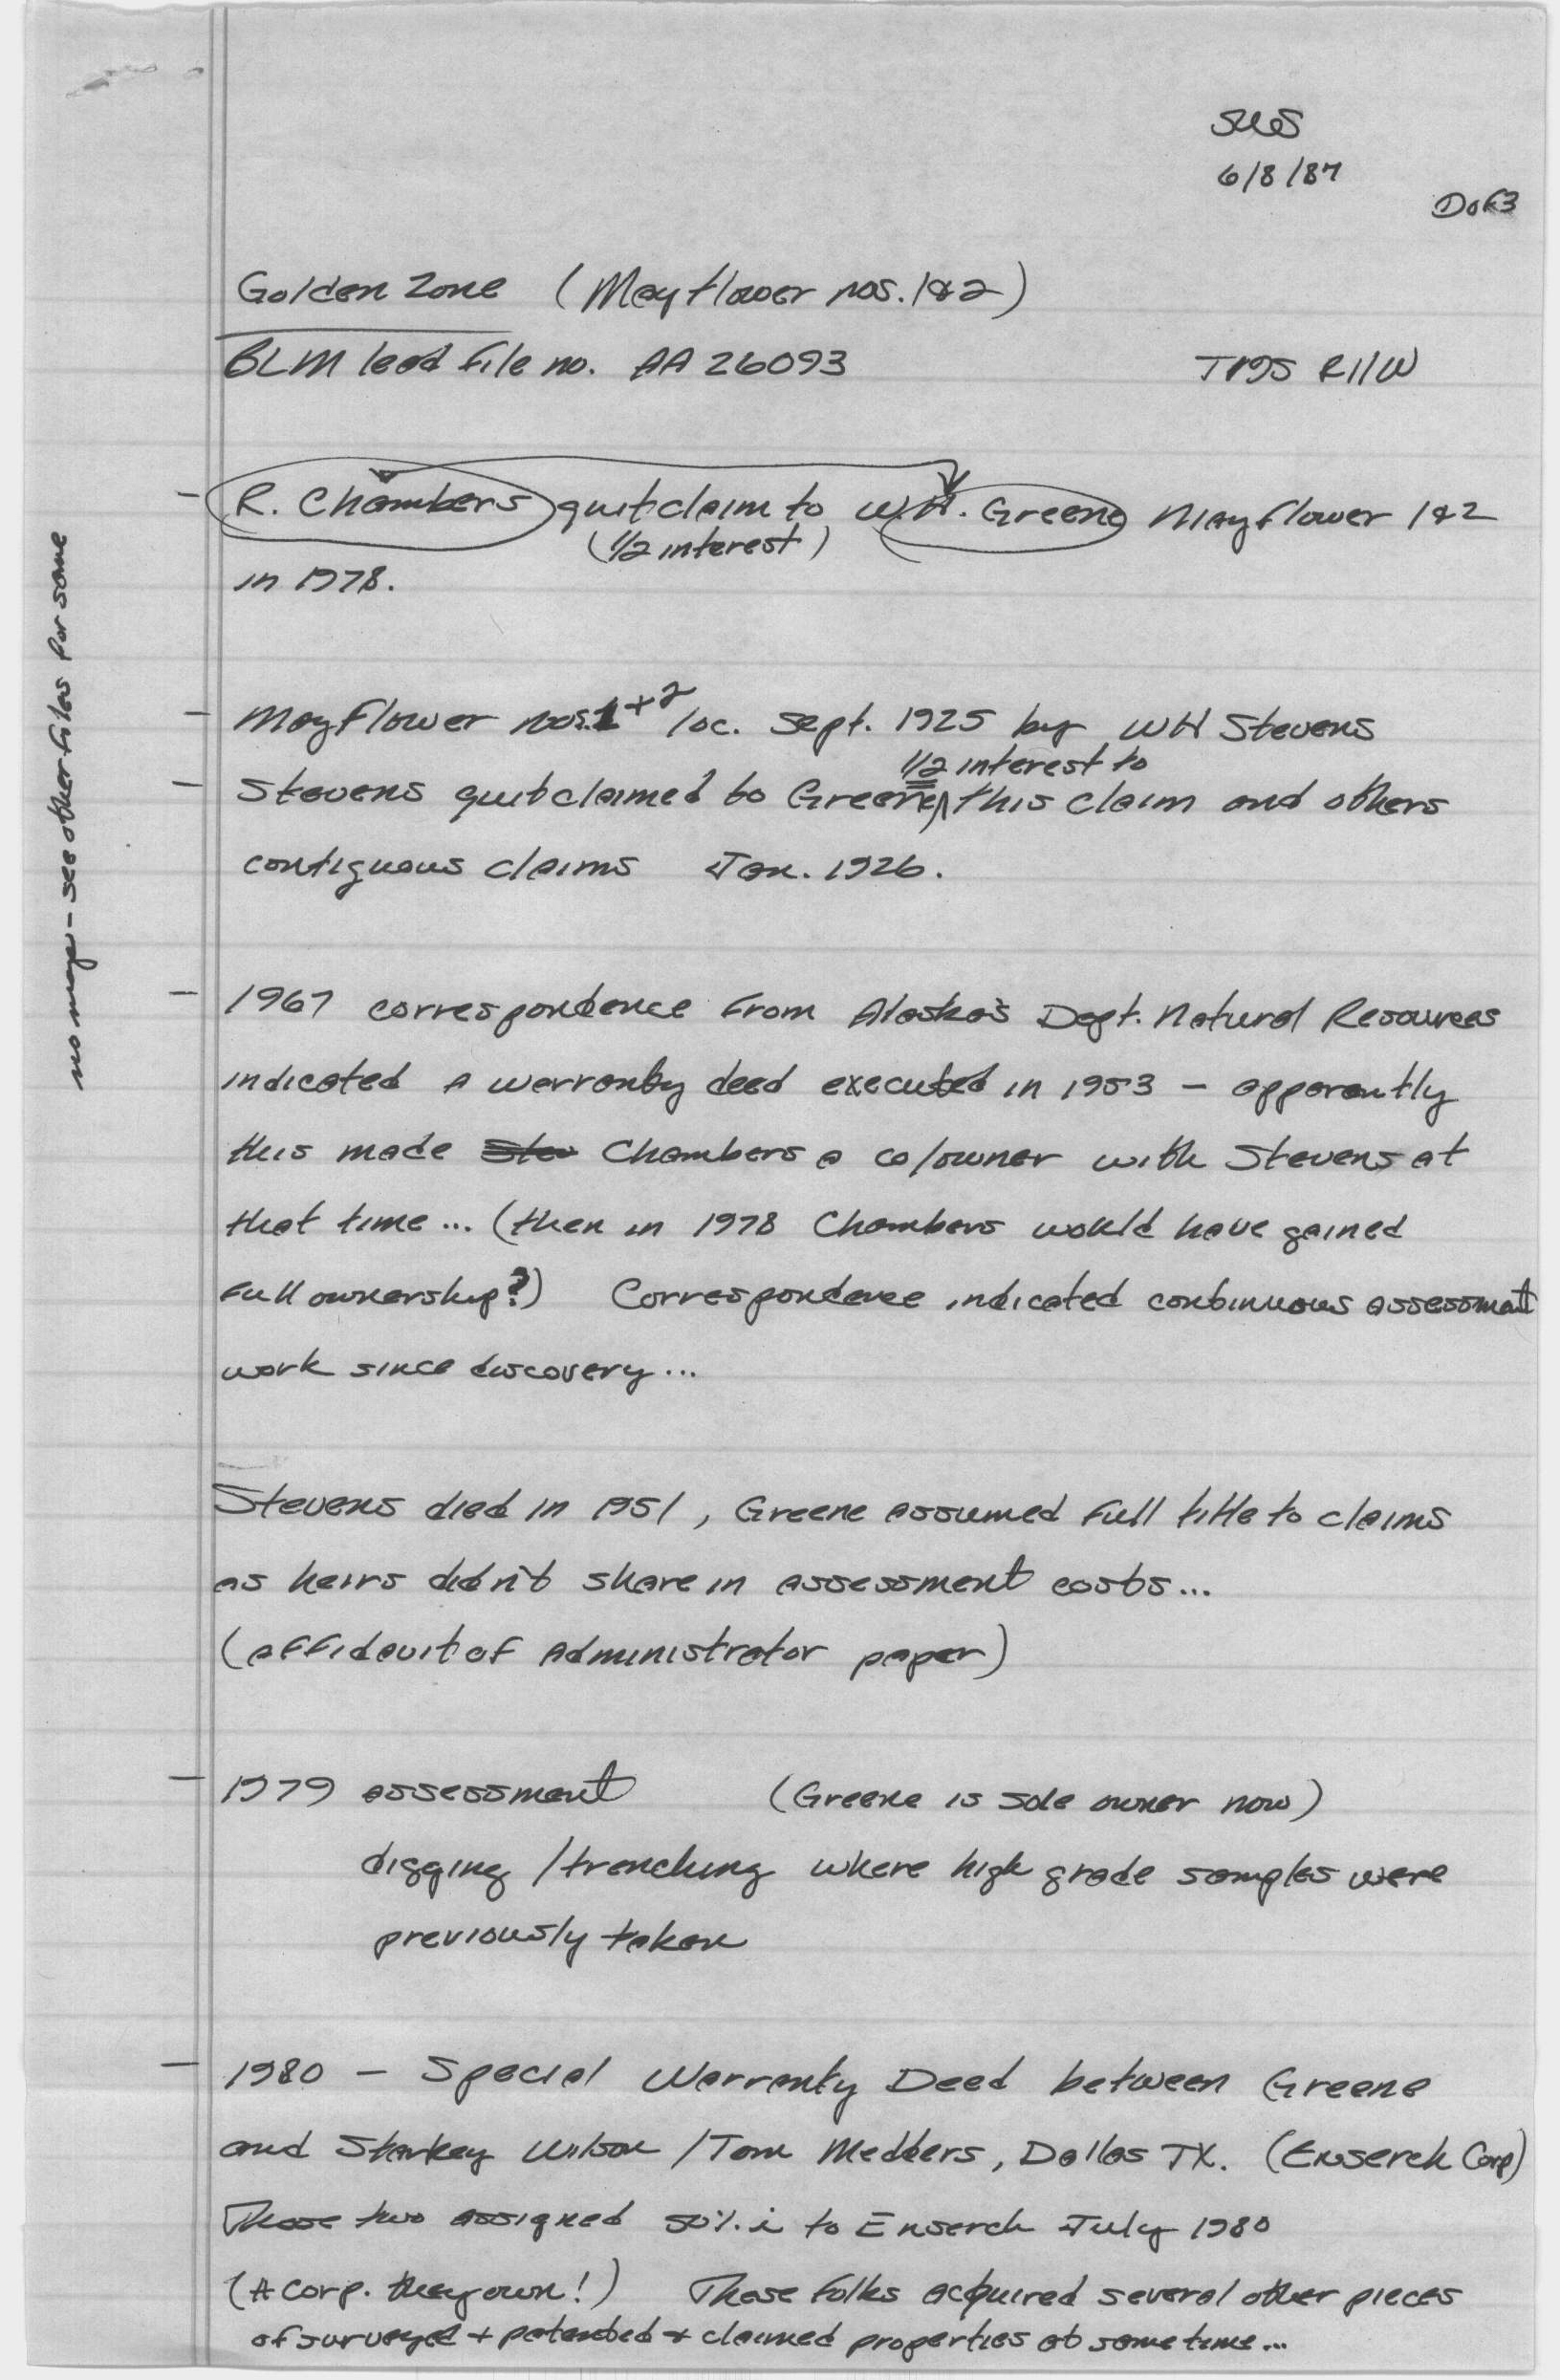 SWS
6/8/87
① of 3
Golden Zone (Mayflower nos. 1&2)
BLM lead file no. AA 26093 T19S R11W
- R. Chambers quitclaim to W.H. Greene Mayflower 1&2
(1/2 interest)
in 1978.
- Mayflower nos. 1+2 loc. Sept. 1925 by WH Stevens
1/2 interest to
- Stevens quitclaimed to Greene, this claim and others
contiguous claims Jan. 1926.
- 1967 correspondence from Alaska's Dept. Natural Resources
indicated a warranty deed executed in 1953 - apparently
this made Stev Chambers a co/owner with Stevens at
that time... (then in 1978 Chambers would have gained
full ownership?) Correspondence indicated continuous assessment
work since discovery...
Stevens died in 1951, Greene assumed full title to claims
as heirs didn't share in assessment costs...
(affidavit of Administrator paper)
- 1979 assessment (Greene is sole owner now)
digging / trenching where high grade samples were
previously taken
- 1980 - Special Warranty Deed between Greene
and Starkey Wilson / Tom Medders, Dallas TX. (Enserch Corp)
These two assigned 50% i to Enserch July 1980
(A corp. they own!) These folks acquired several other pieces
of surveyed + patented + claimed properties at same time...
no maps - see other files for same